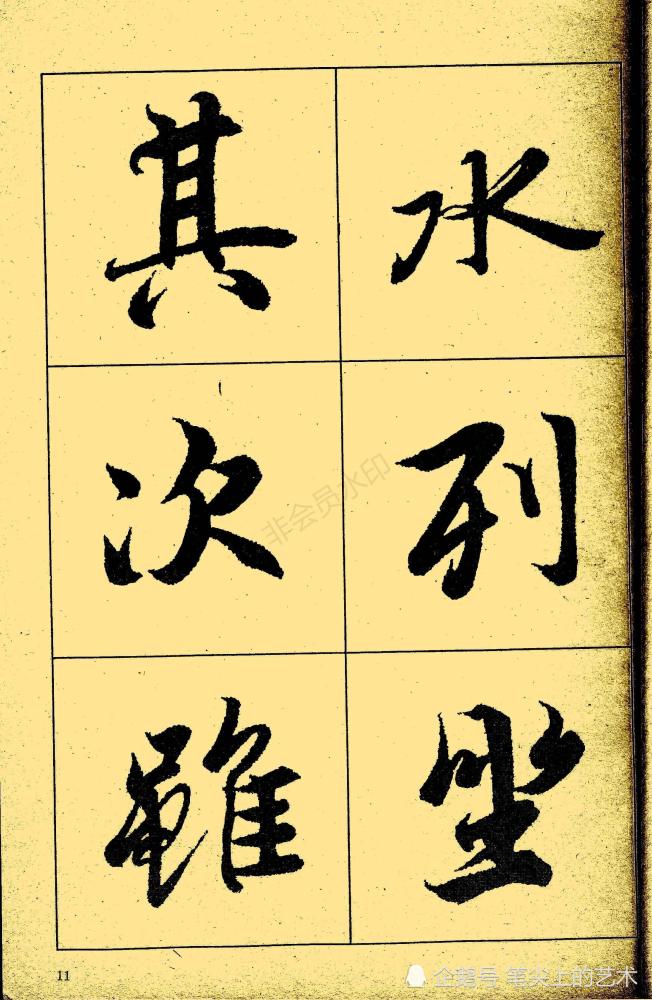 水列坐
其次雖
非会员水印
11
企鹅号 笔尖上的艺术